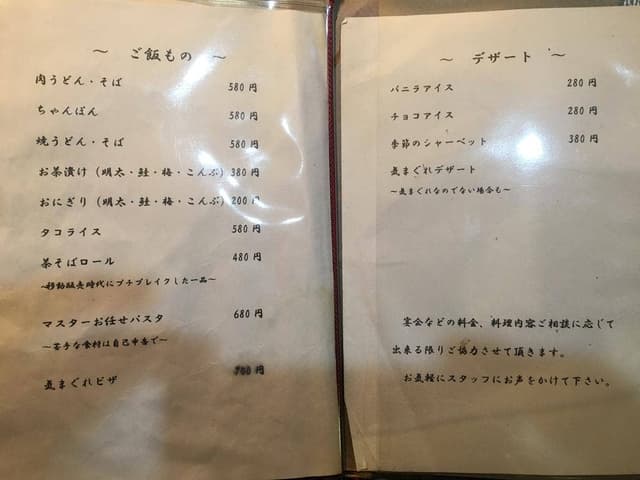 ～ ご飯もの ～
肉うどん・そば 580円
ちゃんぽん 580円
焼うどん・そば 580円
お茶漬け（明太・鮭・梅・こんぶ）380円
おにぎり（明太・鮭・梅・こんぶ）200円
タコライス 580円
茶そばロール 480円
～移動販売時代にプチブレイクした一品～
マスターお任せパスタ 680円
～苦手な食材は自己申告で～
気まぐれピザ 円
～ デザート ～
バニラアイス 280円
チョコアイス 280円
季節のシャーベット 380円
気まぐれデザート
～気まぐれなのでない場合も～
宴会などの料金、料理内容ご相談に応じて
出来る限りご協力させて頂きます。
お気軽にスタッフにお声をかけて下さい。